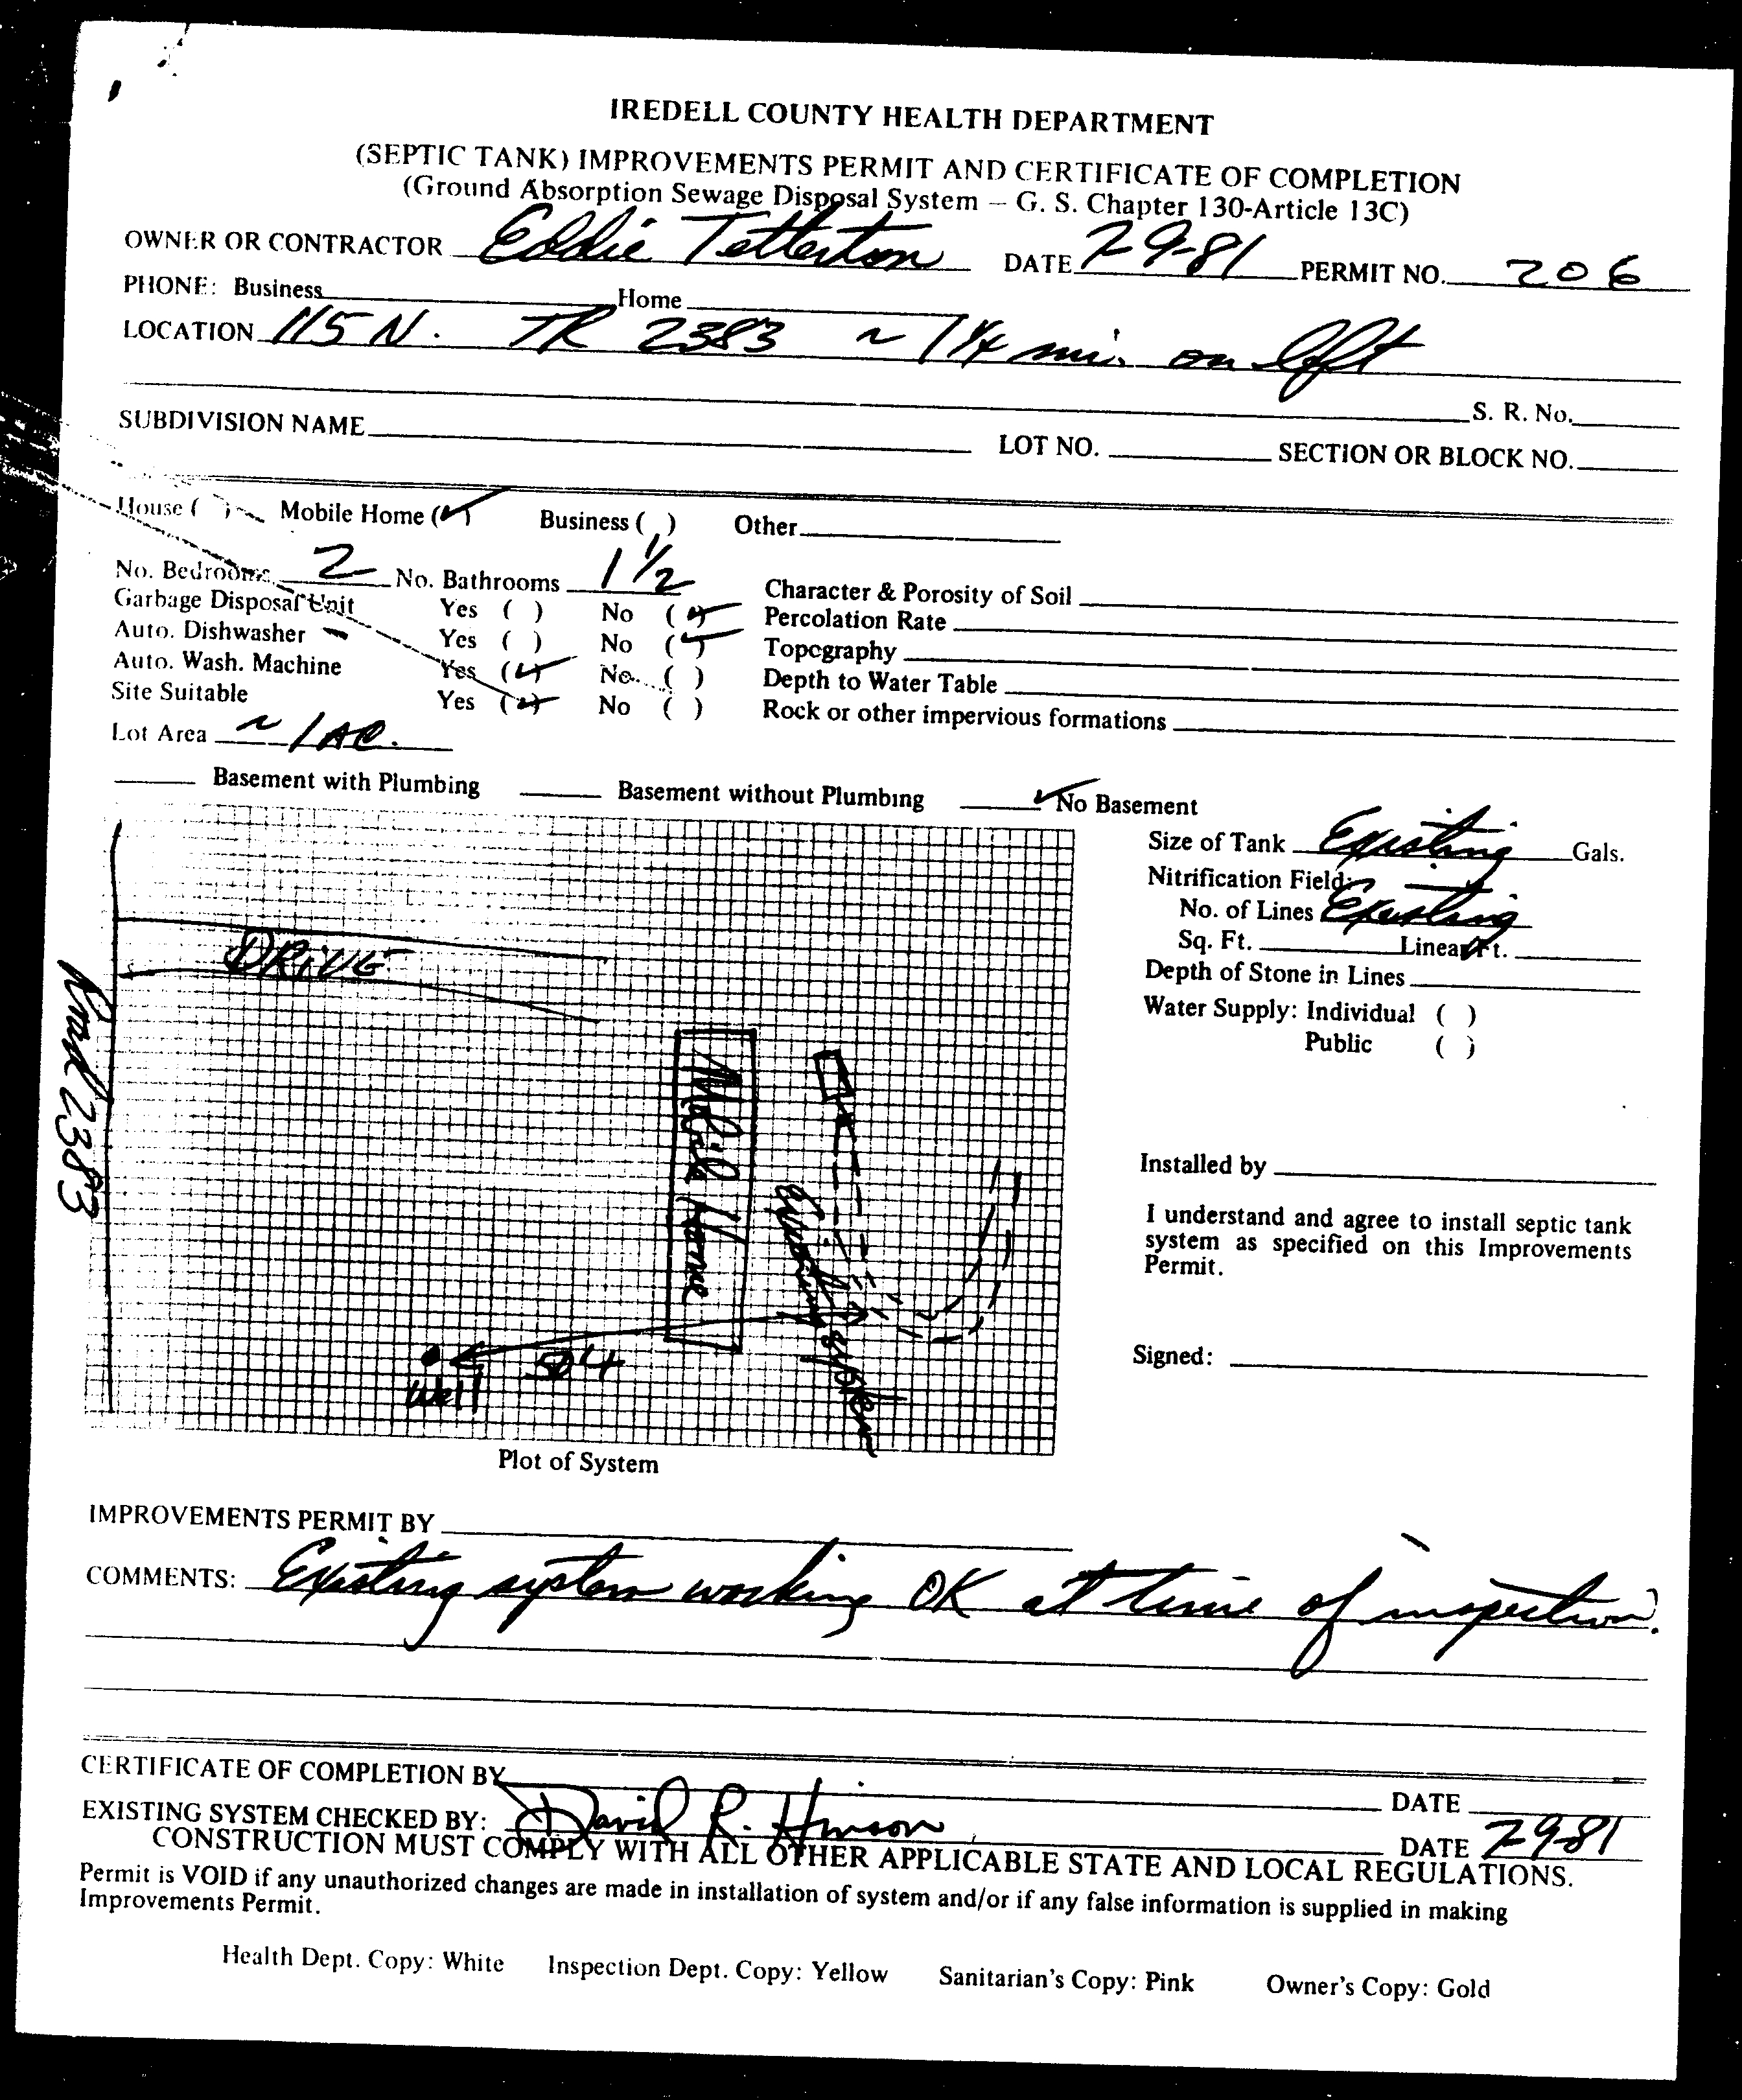 IREDELL COUNTY HEALTH DEPARTMENT
(SEPTIC TANK) IMPROVEMENTS PERMIT AND CERTIFICATE OF COMPLETION
(Ground Absorption Sewage Disposal System – G. S. Chapter 130-Article 13C)
OWNER OR CONTRACTOR Eddie Tetterton DATE 7-9-81 PERMIT NO. 206
PHONE: Business Home
LOCATION 115 N. TR 2383 ~ 1 1/4 mi. on left
S. R. No.
SUBDIVISION NAME LOT NO. SECTION OR BLOCK NO.
House ( ) Mobile Home (✓) Business ( ) Other
No. Bedrooms 2 No. Bathrooms 1 1/2 Character & Porosity of Soil
Garbage Disposal Unit Yes ( ) No (✓) Percolation Rate
Auto. Dishwasher Yes ( ) No (✓) Topography
Auto. Wash. Machine Yes (✓) No ( ) Depth to Water Table
Site Suitable Yes (✓) No ( ) Rock or other impervious formations
Lot Area ~ 1 AC.
Basement with Plumbing Basement without Plumbing ✓ No Basement
Size of Tank Existing Gals.
Nitrification Field:
No. of Lines Existing
Sq. Ft. Linear Ft.
Depth of Stone in Lines
Water Supply: Individual ( )
Public ( )
DRIVE
Road 2383
Mobile Home
Existing system
Well
Installed by
I understand and agree to install septic tank
system as specified on this Improvements
Permit.
Signed:
Plot of System
IMPROVEMENTS PERMIT BY
COMMENTS: Existing system working OK at time of inspection.
CERTIFICATE OF COMPLETION BY DATE
EXISTING SYSTEM CHECKED BY: David R. Hinson DATE 7-9-81
CONSTRUCTION MUST COMPLY WITH ALL OTHER APPLICABLE STATE AND LOCAL REGULATIONS.
Permit is VOID if any unauthorized changes are made in installation of system and/or if any false information is supplied in making
Improvements Permit.
Health Dept. Copy: White Inspection Dept. Copy: Yellow Sanitarian's Copy: Pink Owner's Copy: Gold